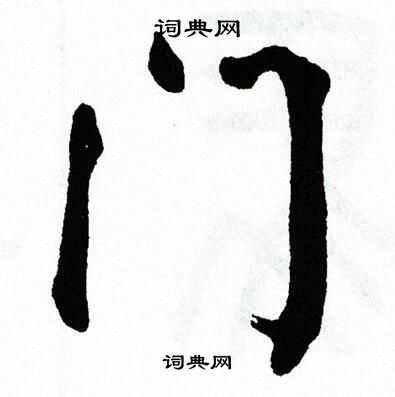 词典网
门
词典网